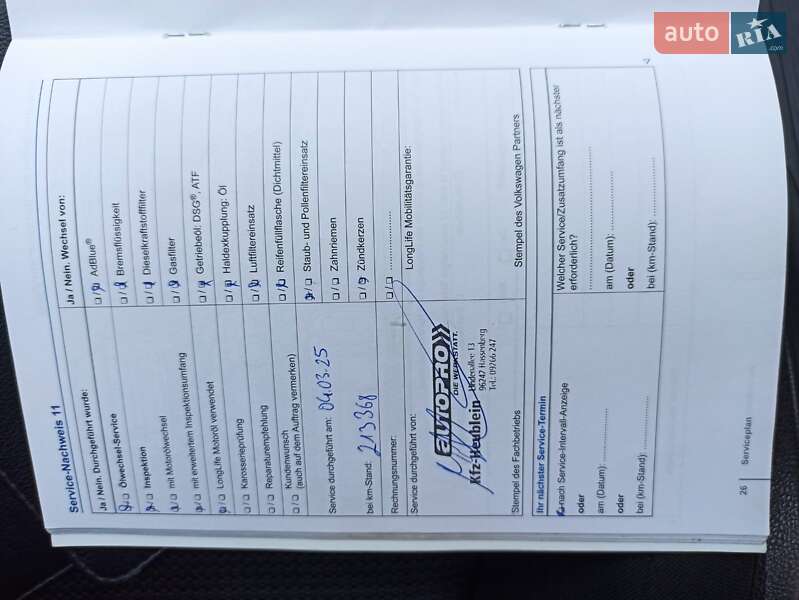 auto RIA .com
Service-Nachweis 11
Ja / Nein. Durchgeführt wurde:
Ölwechsel-Service
Inspektion
mit Motorölwechsel
mit erweitertem Inspektionsumfang
LongLife Motoröl verwendet
Karosserieprüfung
Reparaturempfehlung
Kundenwunsch
(auch auf dem Auftrag vermerken)
Service durchgeführt am: 04.03.25
bei km-Stand: 213368
Rechnungsnummer:
Service durchgeführt von:
AUTOPRO
DIE WERKSTATT.
Kfz-Heublein
Lindenallee 13
96247 Hassenberg
Tel.: 09266 247
Stempel des Fachbetriebs
Ja / Nein. Wechsel von:
AdBlue®
Bremsflüssigkeit
Dieselkraftstofffilter
Gasfilter
Getriebeöl: DSG®, ATF
Haldexkupplung: Öl
Luftfiltereinsatz
Reifenfüllflasche (Dichtmittel)
Staub- und Pollenfiltereinsatz
Zahnriemen
Zündkerzen
LongLife Mobilitätsgarantie:
Stempel des Volkswagen Partners
Ihr nächster Service-Termin
nach Service-Intervall-Anzeige
oder
am (Datum):
oder
bei (km-Stand):
Welcher Service/Zusatzumfang ist als nächster
erforderlich?
am (Datum):
oder
bei (km-Stand):
26 Serviceplan